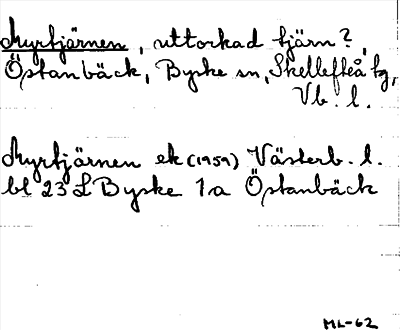 Myrtjärnen, uttorkad tjärn?,
Östanbäck, Byske sn, Skellefteå tg,
Vb. l.
Myrtjärnen ek (1959) Västerb. l.
bl 23 L Byske 1a Östanbäck
ML-62